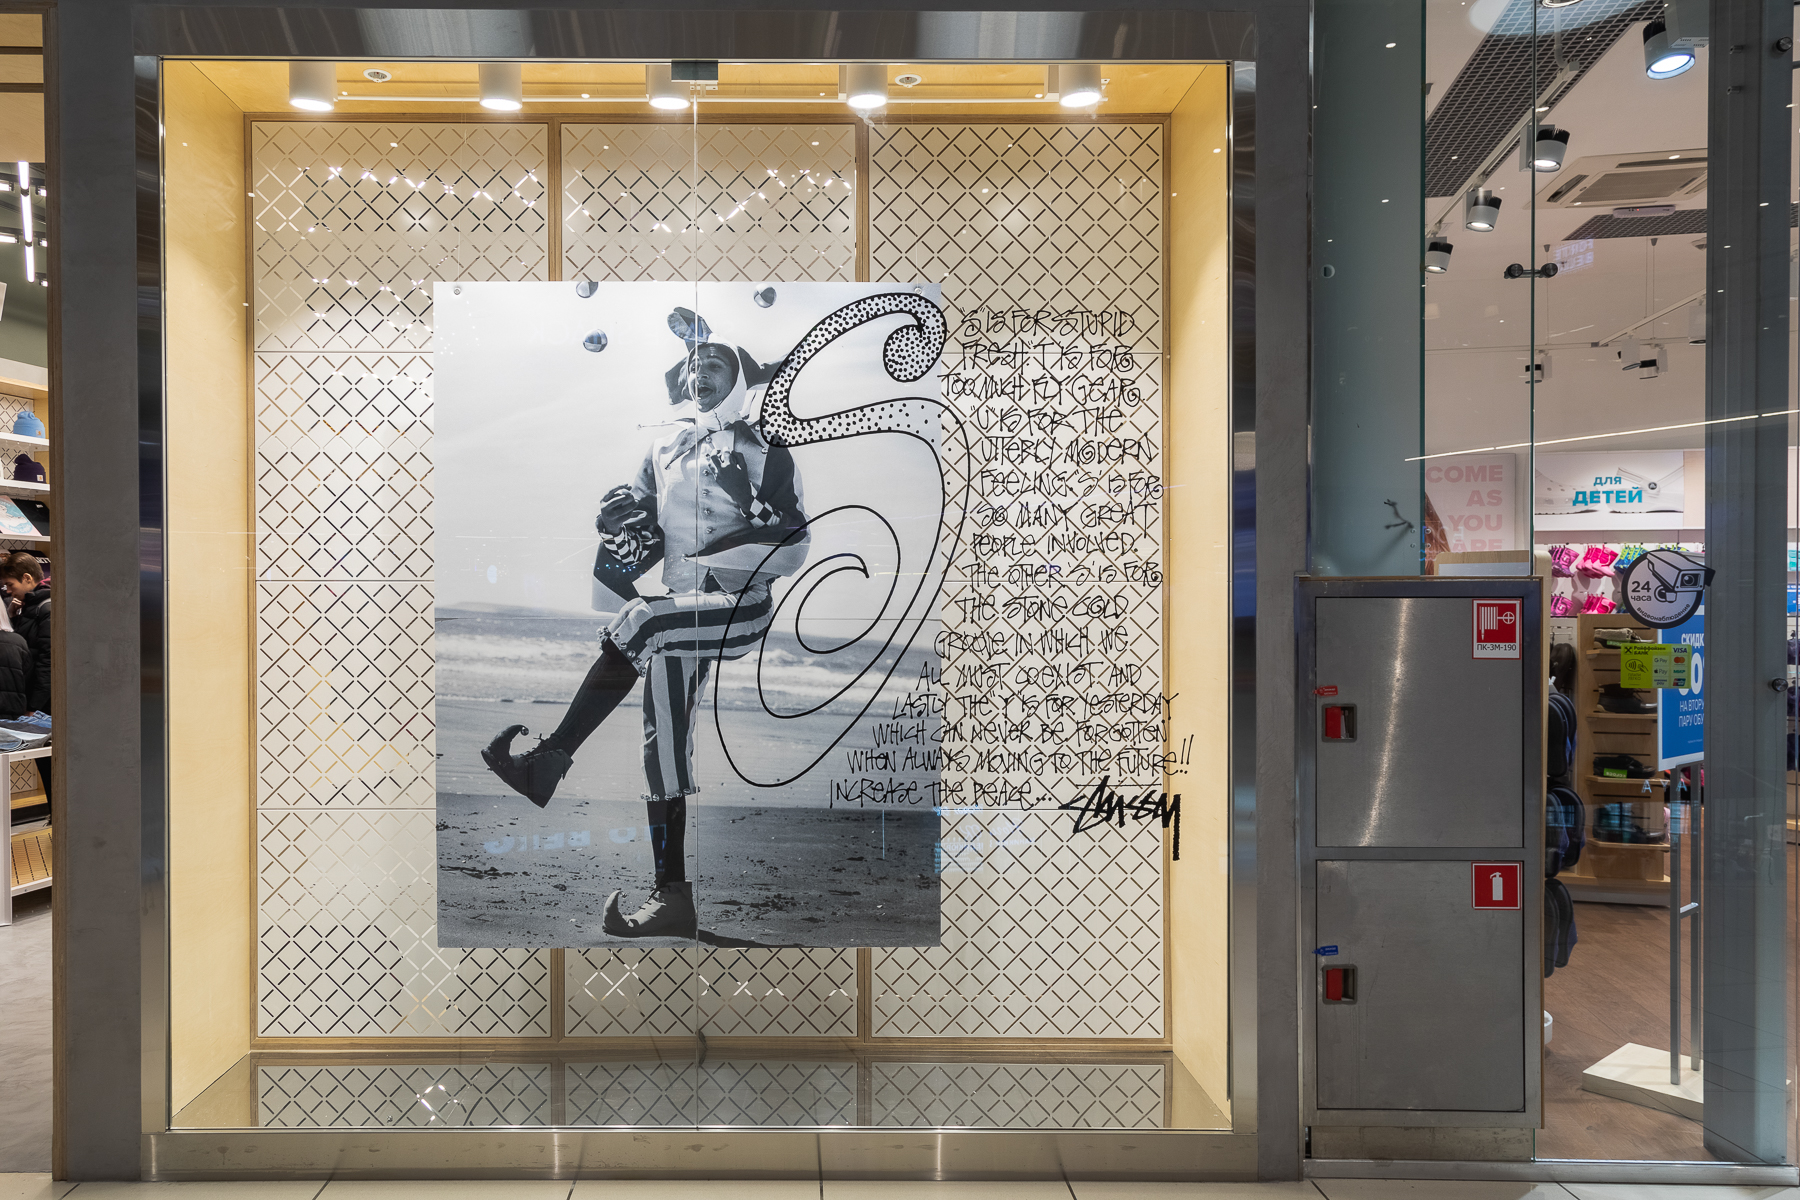 "S" IS FOR STUPID
FRESH. "T" IS FOR
TOO MUCH FLY GEAR.
"U" IS FOR THE
UTTERLY MODERN
FEELING. "S" IS FOR
SO MANY GREAT
PEOPLE INVOLVED.
THE OTHER "S" IS FOR
THE STONE COLD
GROOVE IN WHICH WE
ALL MUST COEXIST. AND
LASTLY THE "Y" IS FOR YESTERDAY
WHICH CAN NEVER BE FORGOTTEN
WHEN ALWAYS MOVING TO THE FUTURE!!
INCREASE THE PEACE...
STUSSY
COME
AS
YOU
ARE
ДЛЯ
ДЕТЕЙ
24
часа
видеонаблюдение
ПК-3М-190
Райффайзен
БАНК
VISA
G Pay
Pay
НА ВТОРУЮ
ПАРУ ОБУВИ